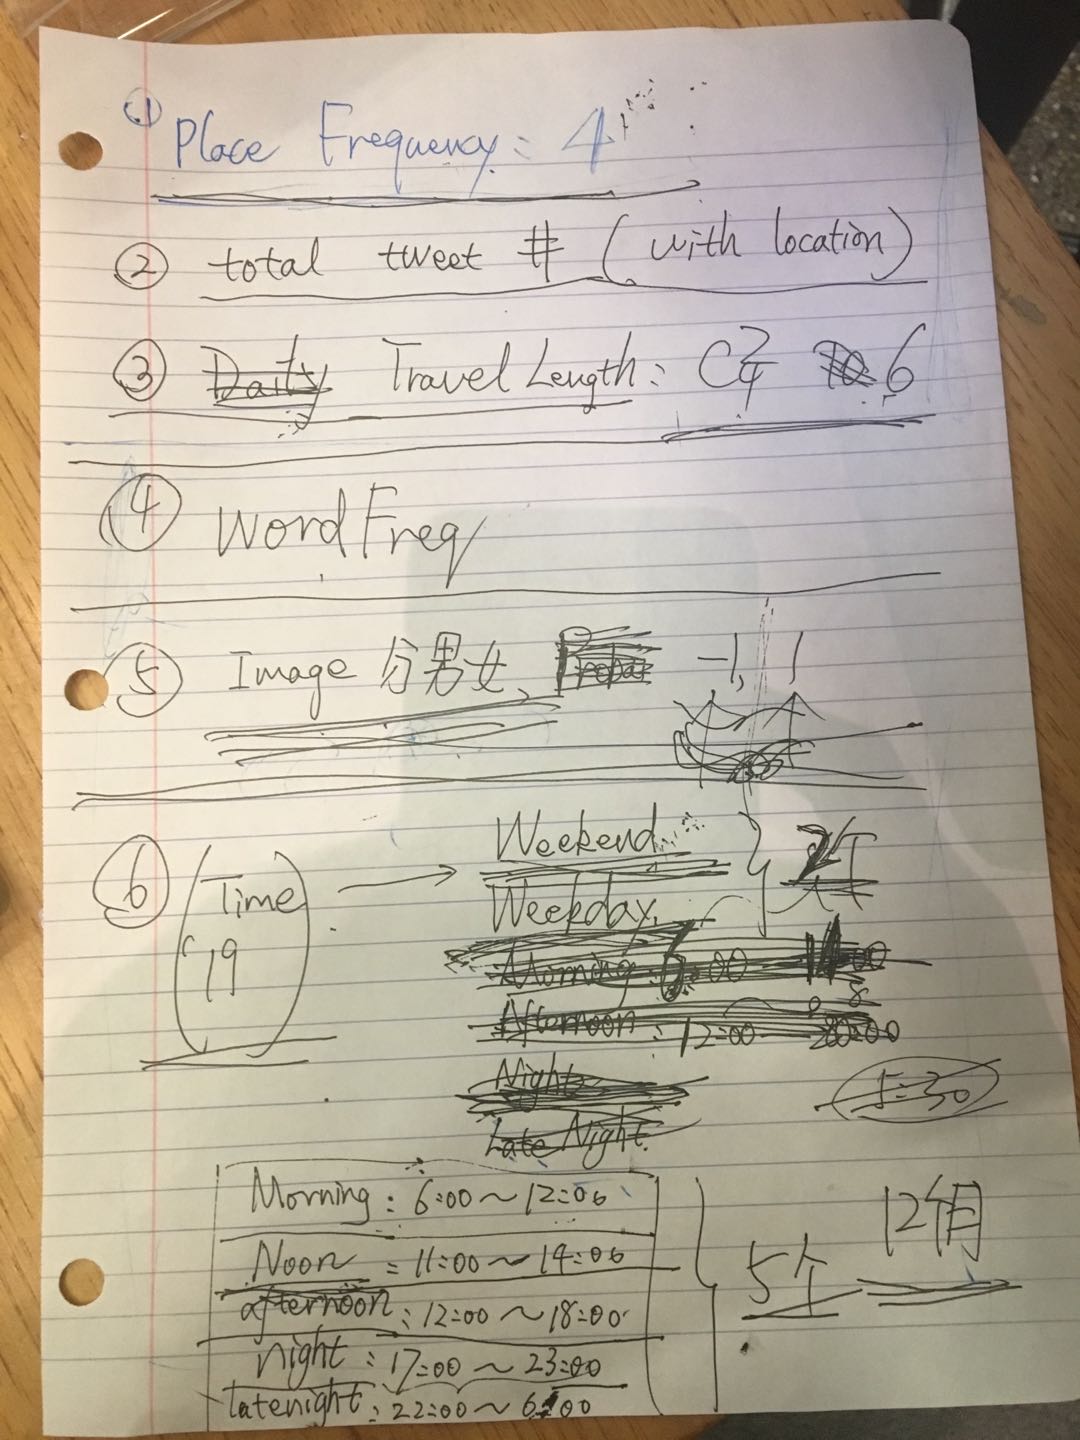 ① Place Frequency: 4
② total tweet # (with location)
③ Daily Travel Length: C²₄ 6
④ Word Freq
⑤ Image 分男女、 -1, 1
⑥ Time 19 → Weekend
Weekday
2个
Morning: 6:00
Afternoon: 12:00
Night
Late Night
5:30
Morning: 6:00~12:00
Noon: 11:00~14:00
afternoon: 12:00~18:00
night: 17:00~23:00
latenight: 22:00~6:00
5个
12个月